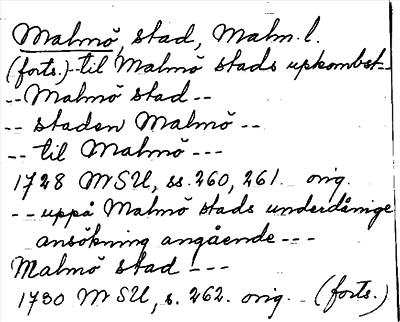 Malmö, stad, Malm. l.
(forts.) -- til Malmö stads upkombst --
-- Malmö stad --
-- staden Malmö --
-- til Malmö ---
1728 MSU, ss. 260, 261. orig.
-- uppå Malmö stads underdånige
ansökning angående ---
Malmö stad ---
1730 MSU, s. 262. orig. (forts.)